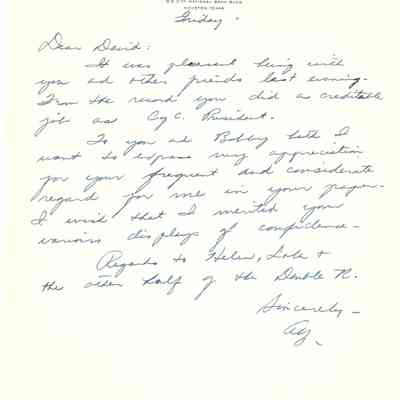 CITY NATIONAL BANK BLDG
HOUSTON, TEXAS
Friday -
Dear David:
It was pleasant being with
you ad other friends last evening.
From the record you did a creditable
job as C of C. President.
To you ad Bobby both I
want to express my appreciation
for your frequent and considerate
regard for me in your paper.
I wish that I merited your
various displays of confidence -
Regards to Helen, Lola +
the other half of the Double N.
Sincerely -